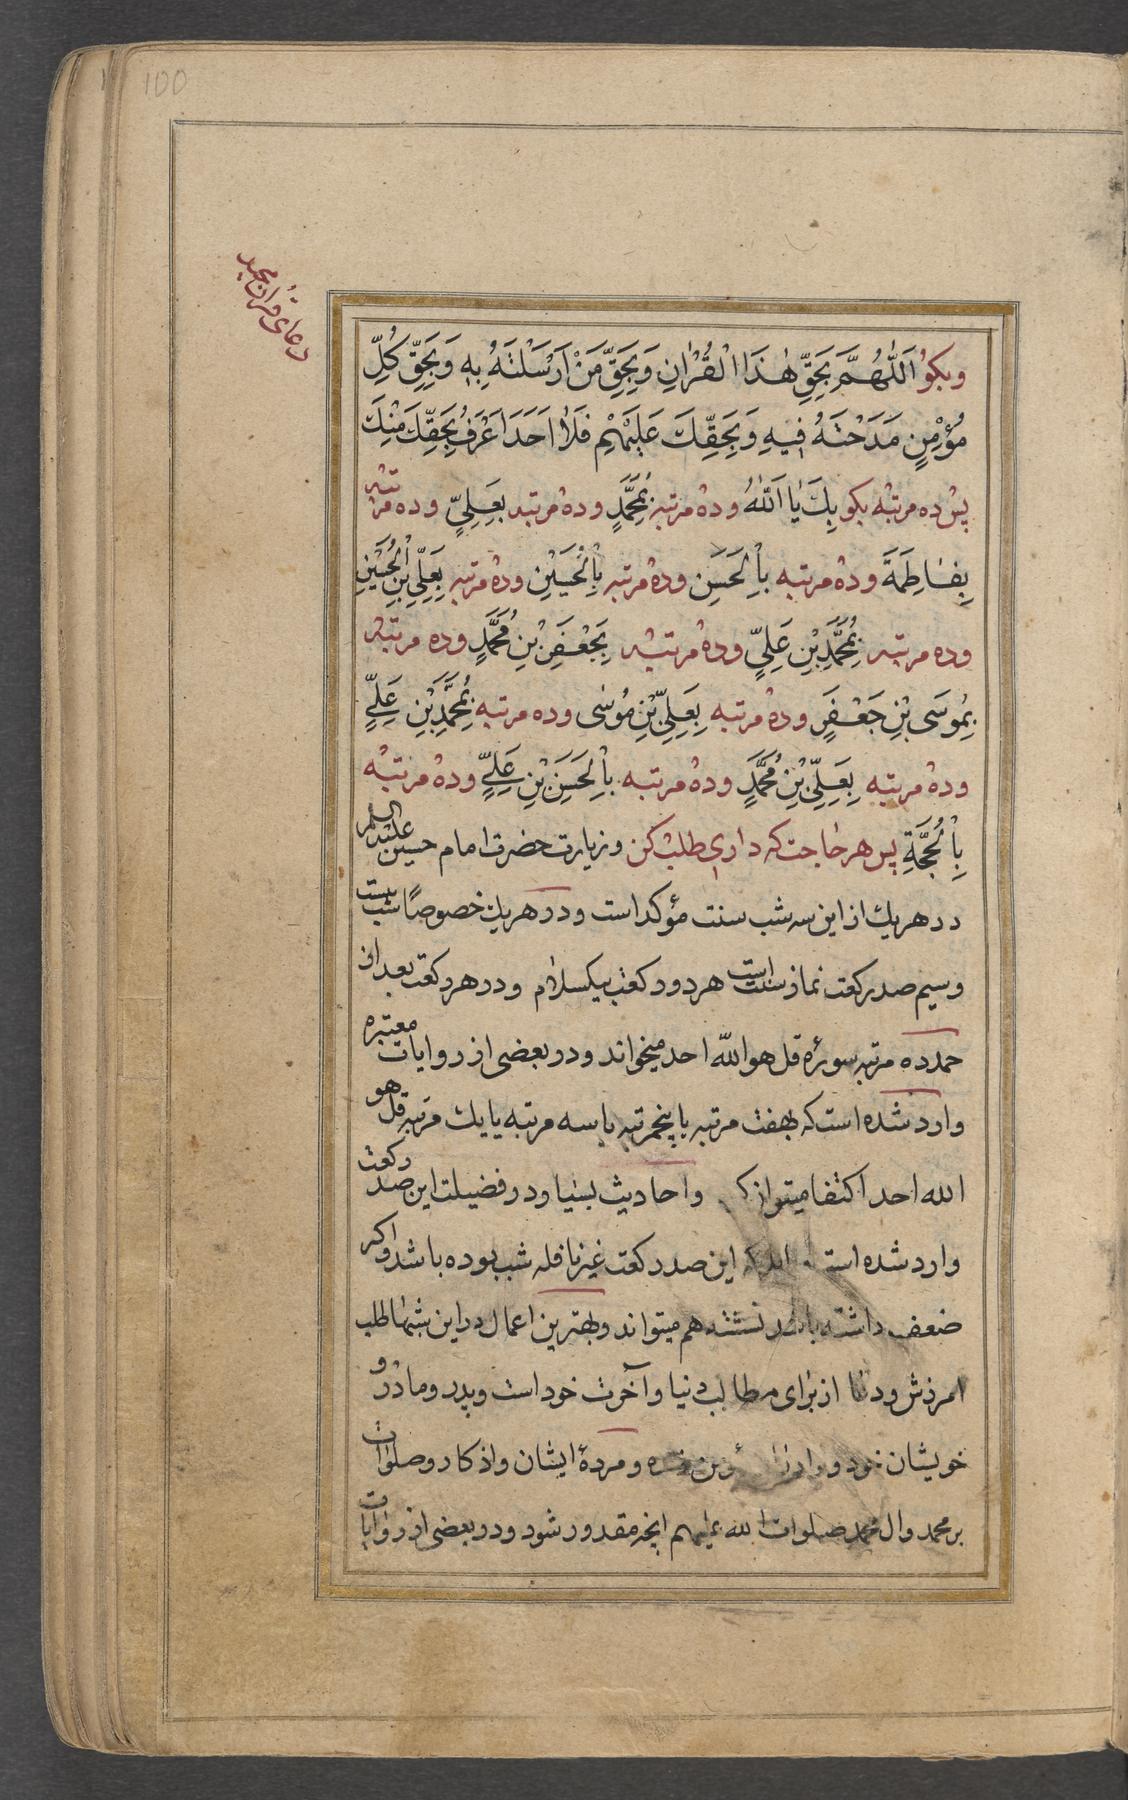 100
دعای قران مجید
وبکو اَللّٰهُمَّ بِحَقِّ هٰذَا الْقُرْاٰنِ وَبِحَقِّ مَنْ اَرْسَلْتَهُ بِهِ وَبِحَقِّ كُلِّ
مُؤْمِنٍ مَدَحْتَهُ فِيهِ وَبِحَقِّكَ عَلَيْهِمْ فَلَا اَحَدَ اَعْرَفُ بِحَقِّكَ مِنْكَ
پس ده مرتبه بکو بِكَ يٰا اَللّٰهُ وده مرتبه بِمُحَمَّدٍ وده مرتبه بِعَلِيٍّ وده مرتبه
بِفٰاطِمَةَ وده مرتبه بِالْحَسَنِ وده مرتبه بِالْحُسَيْنِ وده مرتبه بِعَلِيِّ بْنِ الْحُسَيْنِ
وده مرتبه بِمُحَمَّدِ بْنِ عَلِيٍّ وده مرتبه بِجَعْفَرِ بْنِ مُحَمَّدٍ وده مرتبه
بِمُوسَى بْنِ جَعْفَرٍ وده مرتبه بِعَلِيِّ بْنِ مُوسٰى وده مرتبه بِمُحَمَّدِ بْنِ عَلِيٍّ
وده مرتبه بِعَلِيِّ بْنِ مُحَمَّدٍ وده مرتبه بِالْحَسَنِ بْنِ عَلِيٍّ وده مرتبه
بِالْحُجَّةِ پس هر حاجت که داری طلب کن وزیارت حضرت امام حسین علیه السلم
در هریک از این سه شب سنت مؤکد است ودر هریک خصوصًا شب بیست
وسیم صد رکعت نماز سنت است هر دو رکعت بیکسلام ودر هر رکعت بعد از
حمد ده مرتبه سورهٔ قل هو الله احد میخواند ودر بعضی از روایات معتبره
وارد شده است که بهفت مرتبه یا پنجمرتبه یا سه مرتبه یا یک مرتبه قل هو
الله احد اکتفا میتواند کرد واحادیث بسیار در فضیلت این صد رکعت
وارد شده است این صد رکعت غیر نافله شب بوده باشد واکر
ضعف داشته باشد نشسته هم میتواند وبهترین اعمال در این شبها طلب
امرزش ودعا از برای مطالب دنیا وآخرت خود است وپدر ومادر و
خویشان خود وبرادران مؤمن زنده ومردهٔ ایشان واذکار وصلوات
بر محمد وال محمد صلوات الله علیهم انچه مقدور شود ودر بعضی از روایات